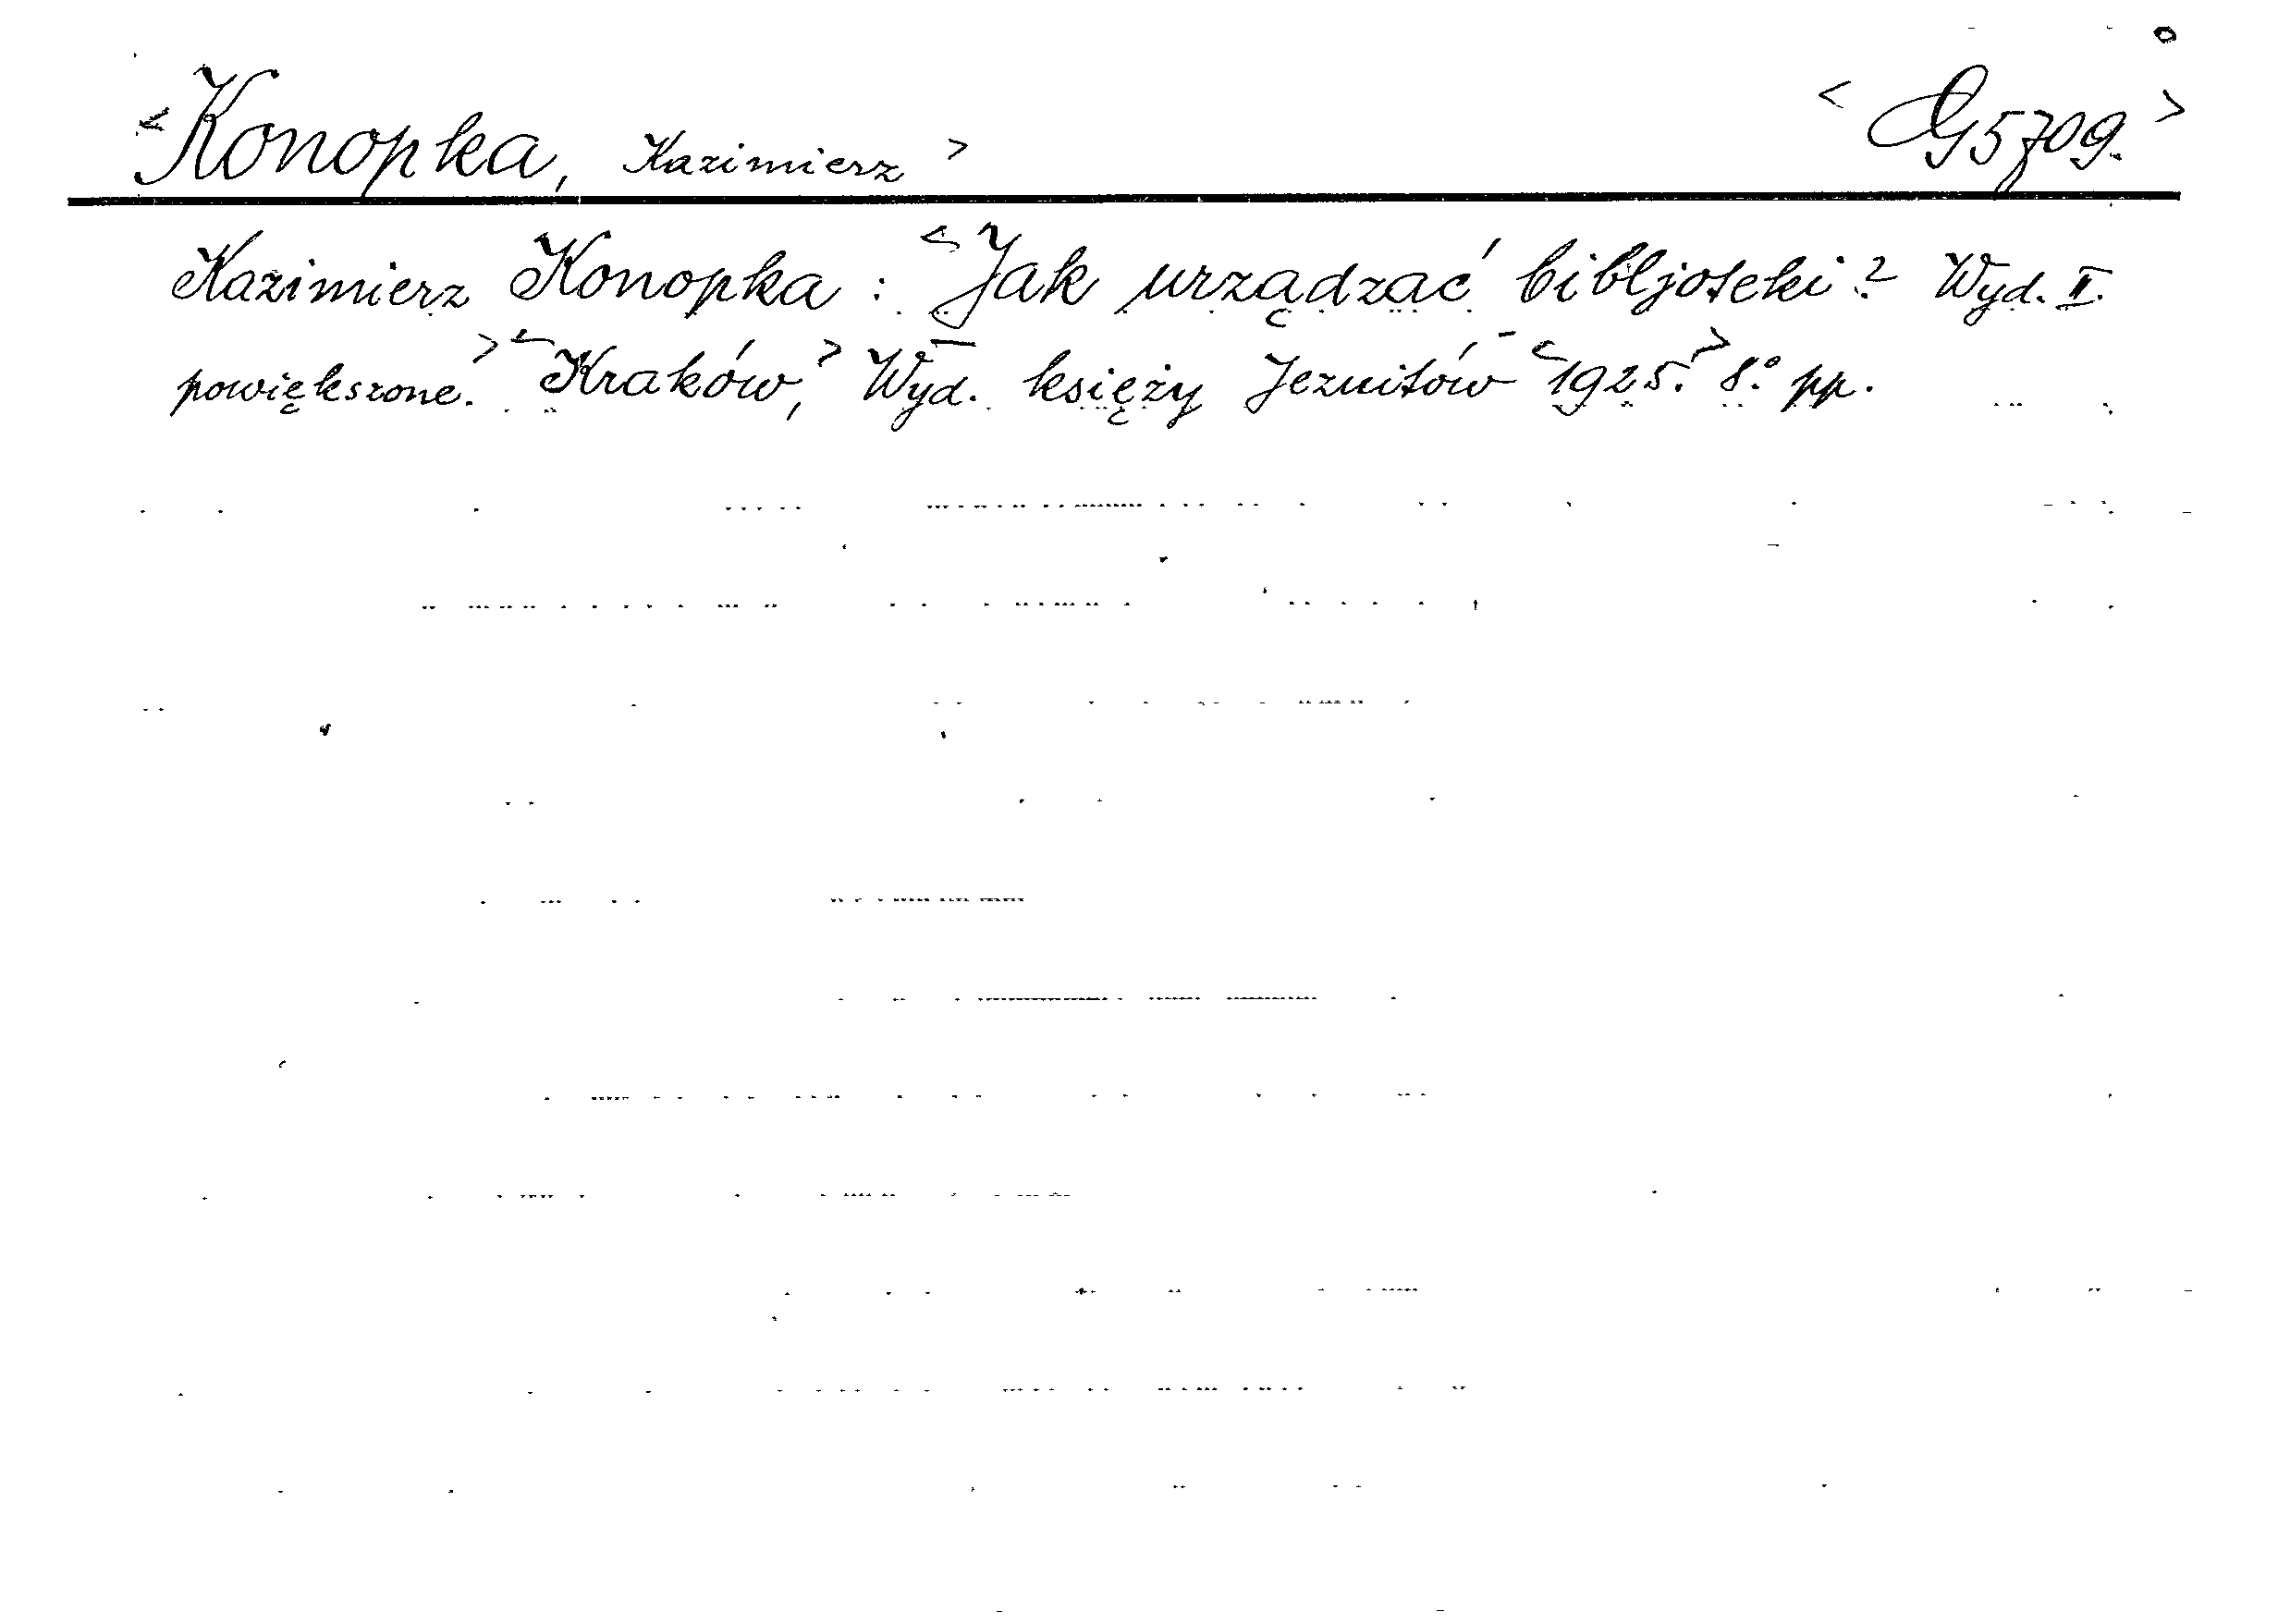 <Konopka, Kazimierz> <G5709.>
Kazimierz Konopka : <Jak urządzać bibljoteki? Wyd. II.
powiększone.> <Kraków,> Wyd. księży Jezuitów <1925.> 8.° pp.